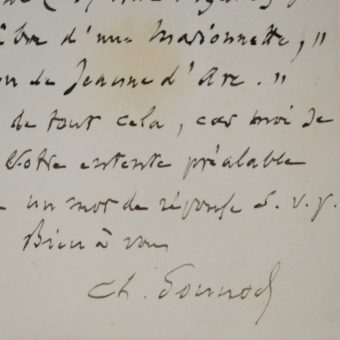 d'une Marionnette,"
de Jeanne d'Arc."
de tout cela, car moi je
Votre entente préalable
un mot de réponse S. v. p.
Bien à vous
Ch. Gounod